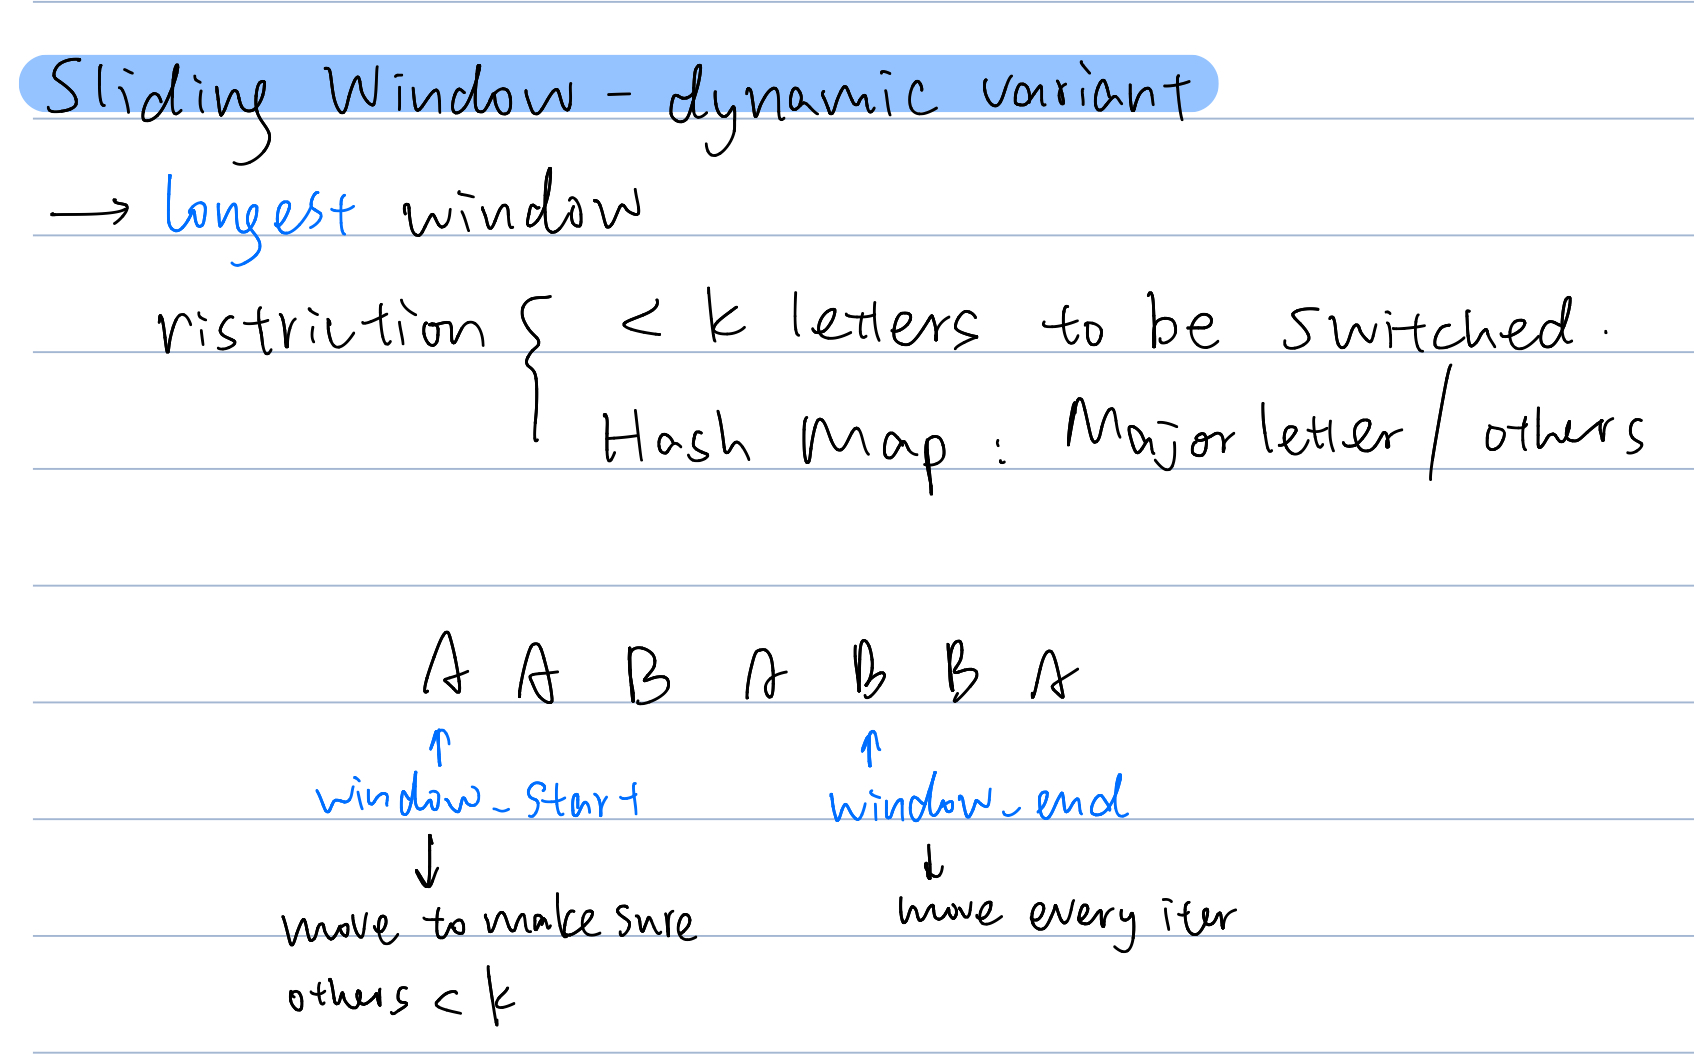 Sliding Window - dynamic variant
→ longest window
ristriction { < k letters to be switched.
Hash Map : Major letter / others
A A B A B B A
↑ ↑
window_start window_end
↓ ↓
move to make sure move every iter
others < k